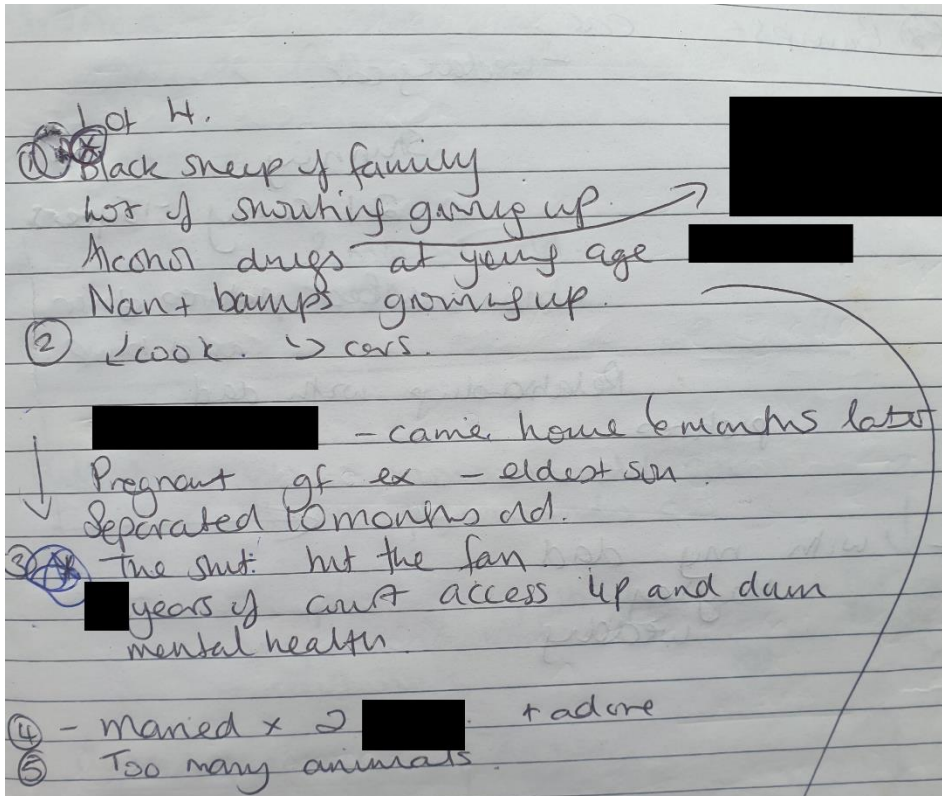 Lot 4.
① Black sheep of family
Lot of shouting growing up.
Alcohol drugs at young age
Nan + bamps growing up.
② cook. cars.
- came home 6 months later
Pregnant gf ex - eldest son
Separated 10 months old.
3 The shit hit the fan
years of court access up and down
mental health
④ - married x 2 + adore
⑤ Too many animals.